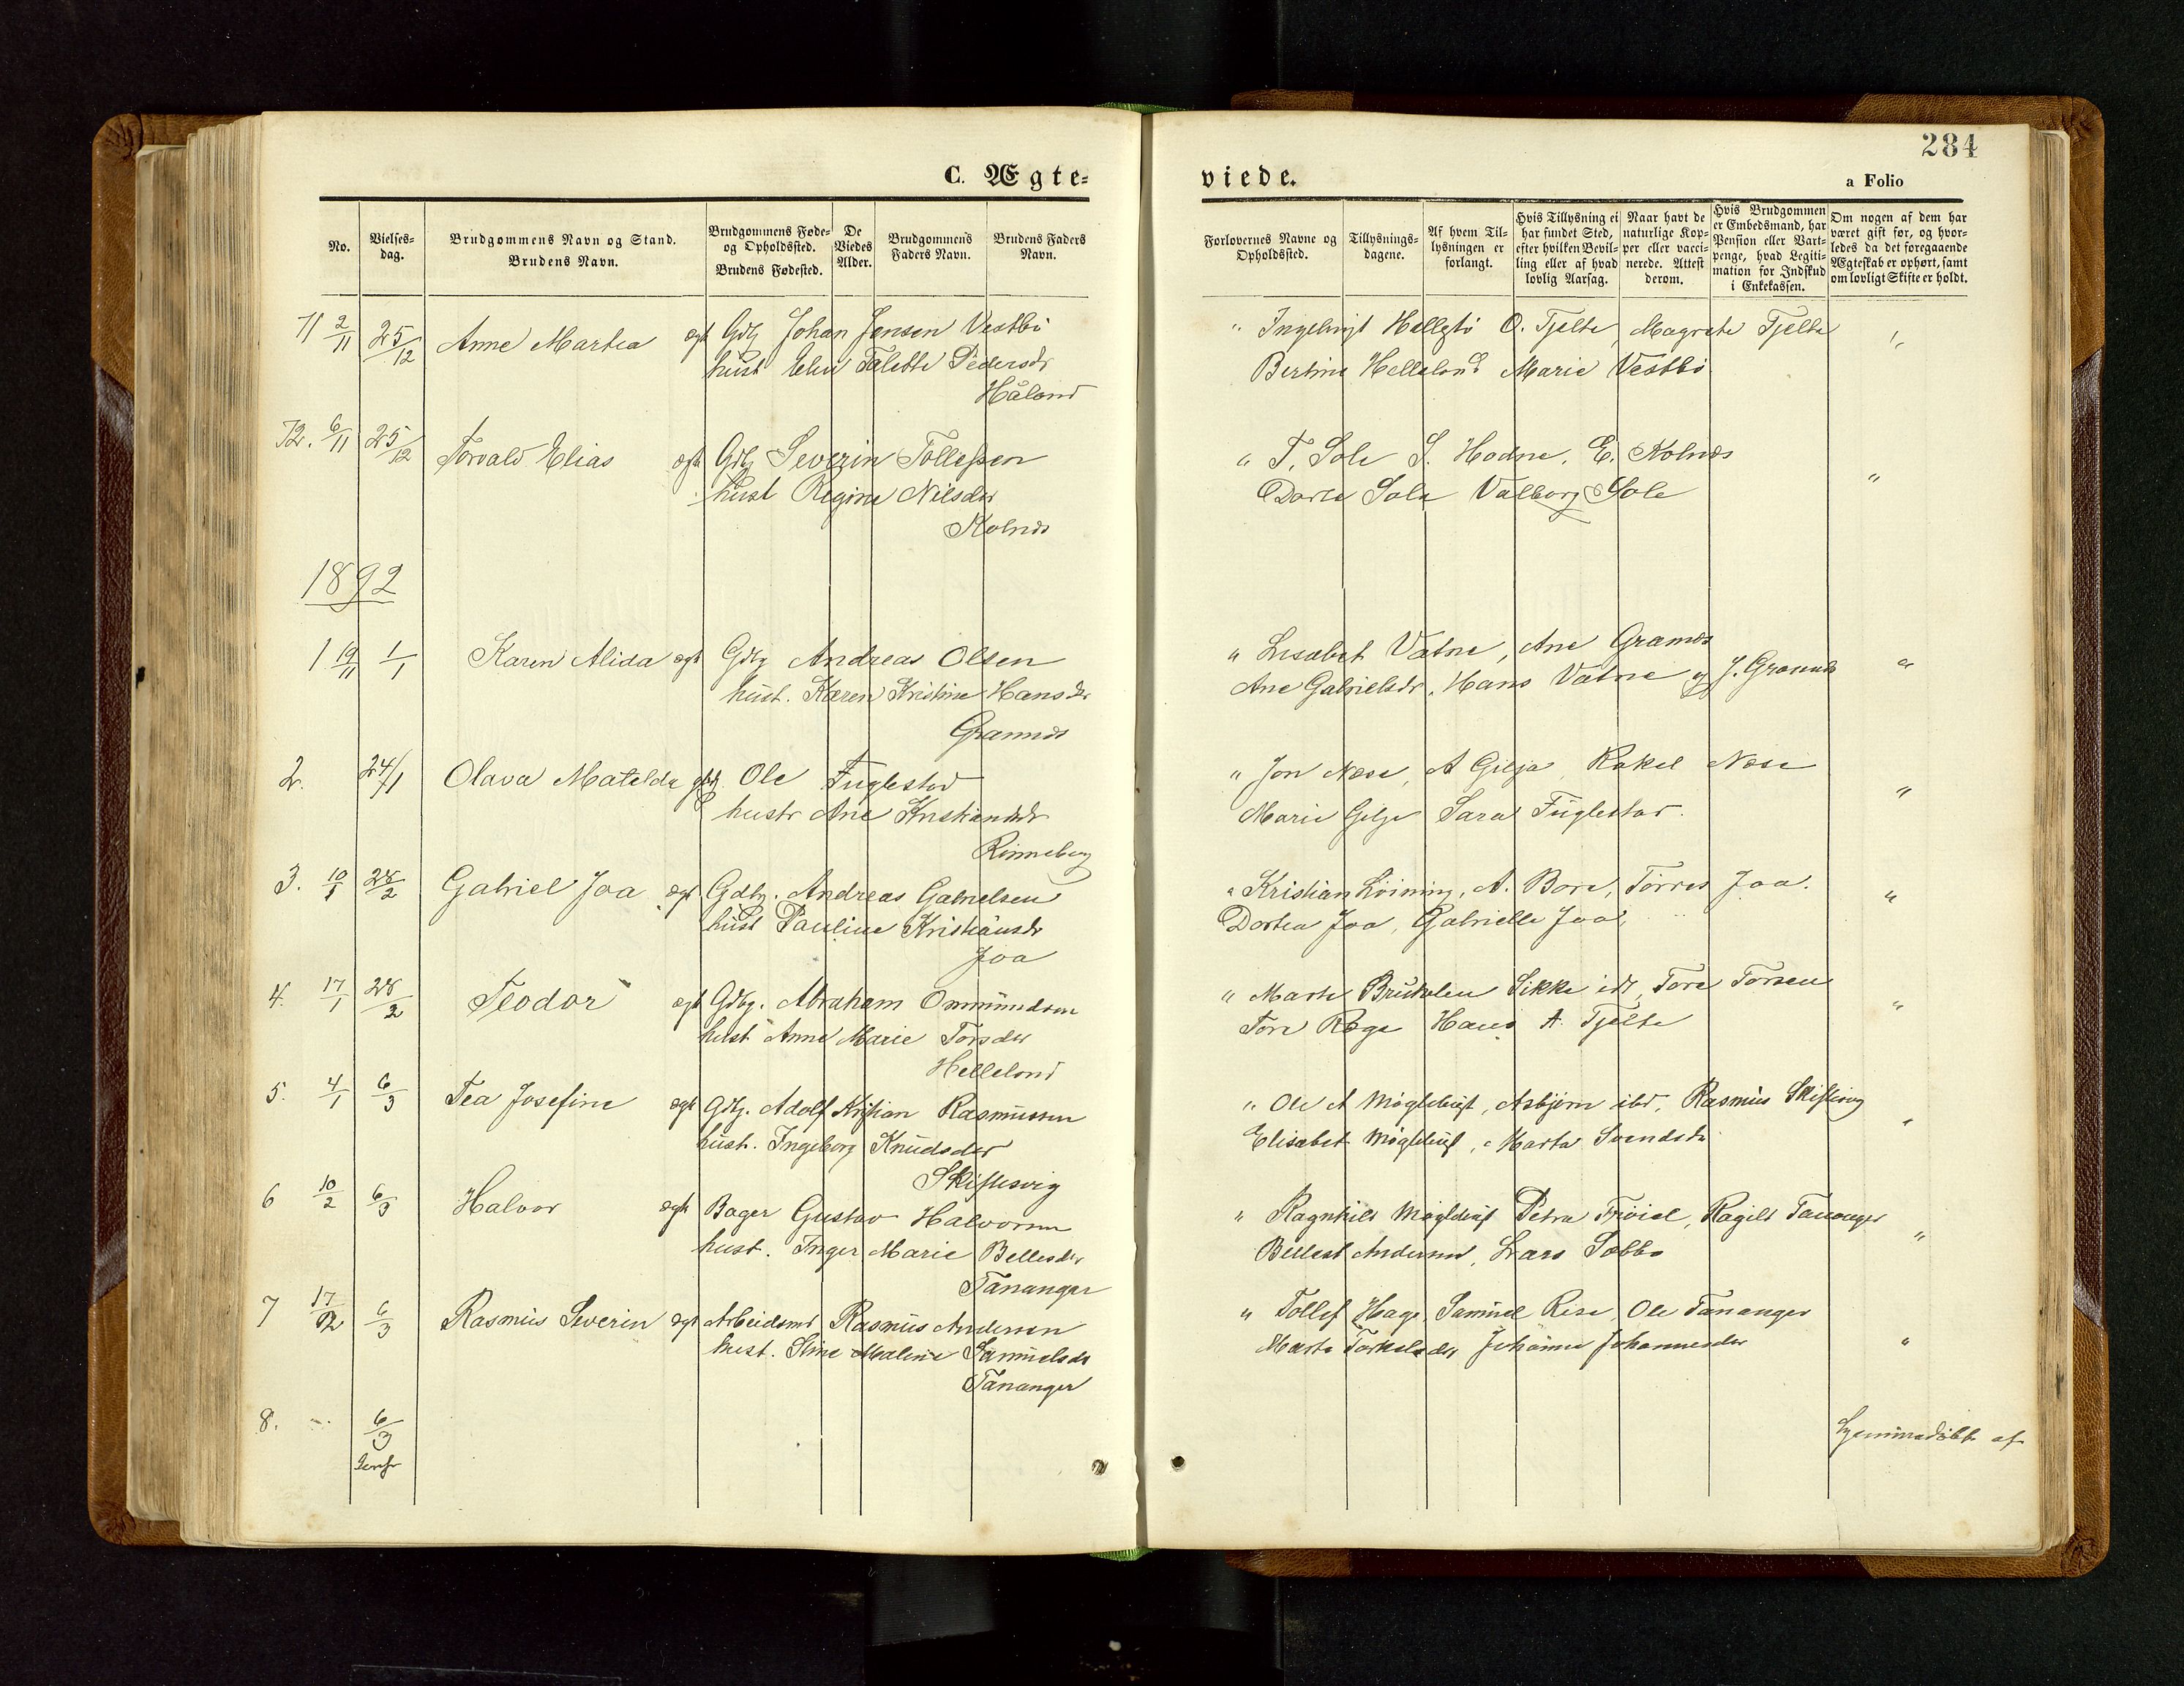 284
C. Ægte-
viede.
a Folio
No.
Vielses-
dag.
Brudgommens Navn og Stand.
Brudens Navn.
Brudgommens Føde-
og Opholdssted.
Brudens Fødested.
De
Viedes
Alder.
Brudgommens
Faders Navn.
Brudens Faders
Navn.
Forlovernes Navne og
Opholdssted.
Tillysnings-
dagene.
Af hvem Til-
lysningen er
forlangt.
Hvis Tillysning ei
har fundet Sted,
efter hvilken Bevil-
ling eller af hvad
lovlig Aarsag.
Naar havt de
naturlige Kop-
per eller vacci-
nerede. Attest
derom.
Hvis Brudgommen
er Embedsmand, har
Pension eller Vart-
penge, hvad Legiti-
mation for Indskud
i Enkekassen.
Om nogen af dem har
været gift før, og hvor-
ledes da det foregaaende
Ægteskab er ophørt, samt
om lovligt Skifte er holdt.
71 2/11 25/12 Anne Martea ægt Gdbg Johan Jensen Vestbø
hust Elen Talette Pedersdr
Håland
" O. Tjelte, Magrete Tjelte "
Bertine Helleland Marie Vestbø
72. 6/11 25/12 Torvald Elias ægt Gdbg Severin Tollefsen
hust Regine Nilsdtr
Kolnes
" T. Sole S. Hodne. E. Kolnes
Dorte Sola Valborg Sole "
1892
1 19/11 1/1 Karen Alida ægt Gdbg Andreas Olsen
hust. Karen Kristine Hansdtr
Grannes
" Lisabet Vatne, Ane Grannes "
Ane Gabrielsdr, Hans Vatne og J. Grannes
2. 24/1 Olava Matelda Ole Fuglestad
hustr Ane Kristiansdr
Rinneberg
" Jon Næse, A Gilja, Rakel Næse "
Marie Gilje Sara Fuglestad.
3. 10/1 28/2 Gabriel Joa ægt Gdbg. Andreas Gabrielsen
hust Pauline Kristiansdr
Joa
" Kristian Löining, A. Bore, Torres Joa. "
Dortea Joa, Gabrielle Joa,
4. 17/1 28/2 Teodor ægt Gdbg. Abraham Ommundsen
hust Anne Marie Torsdtr
Helleland
" Marte Sikke, Tore Torsen "
Tore Rege Hans A. Tjelte
5. 4/1 6/3 Tea Josefine ægt Gdbg. Adolf Kristian Rasmussen
hust. Ingeborg Knudsdtr
Skiftesvig
" Ole A Møglebust, Asbjörn ibd, Rasmus Skiftesvig "
Elisabet Møglebust, Marta Svendsdr
6 10/2 6/3 Halvor ægt Bager Gustav Halvorsen
hust. Inger Marie Bellesdtr
Tananger
" Ragnhild Møglebust Petra, Ragild Tananger "
Bellest Andersen, Lars
7 17/2 6/3 Rasmus Severin ægt Arbeidsmd Rasmus Andersen
hust. Sine Maline Samuelsdr
Tananger
" Tollef Hage, Samuel Rise, Ole Tananger
Marte Torkelsdtr Johanne Johannesdtr "
8. " 6/3
Hjemmedöbt af